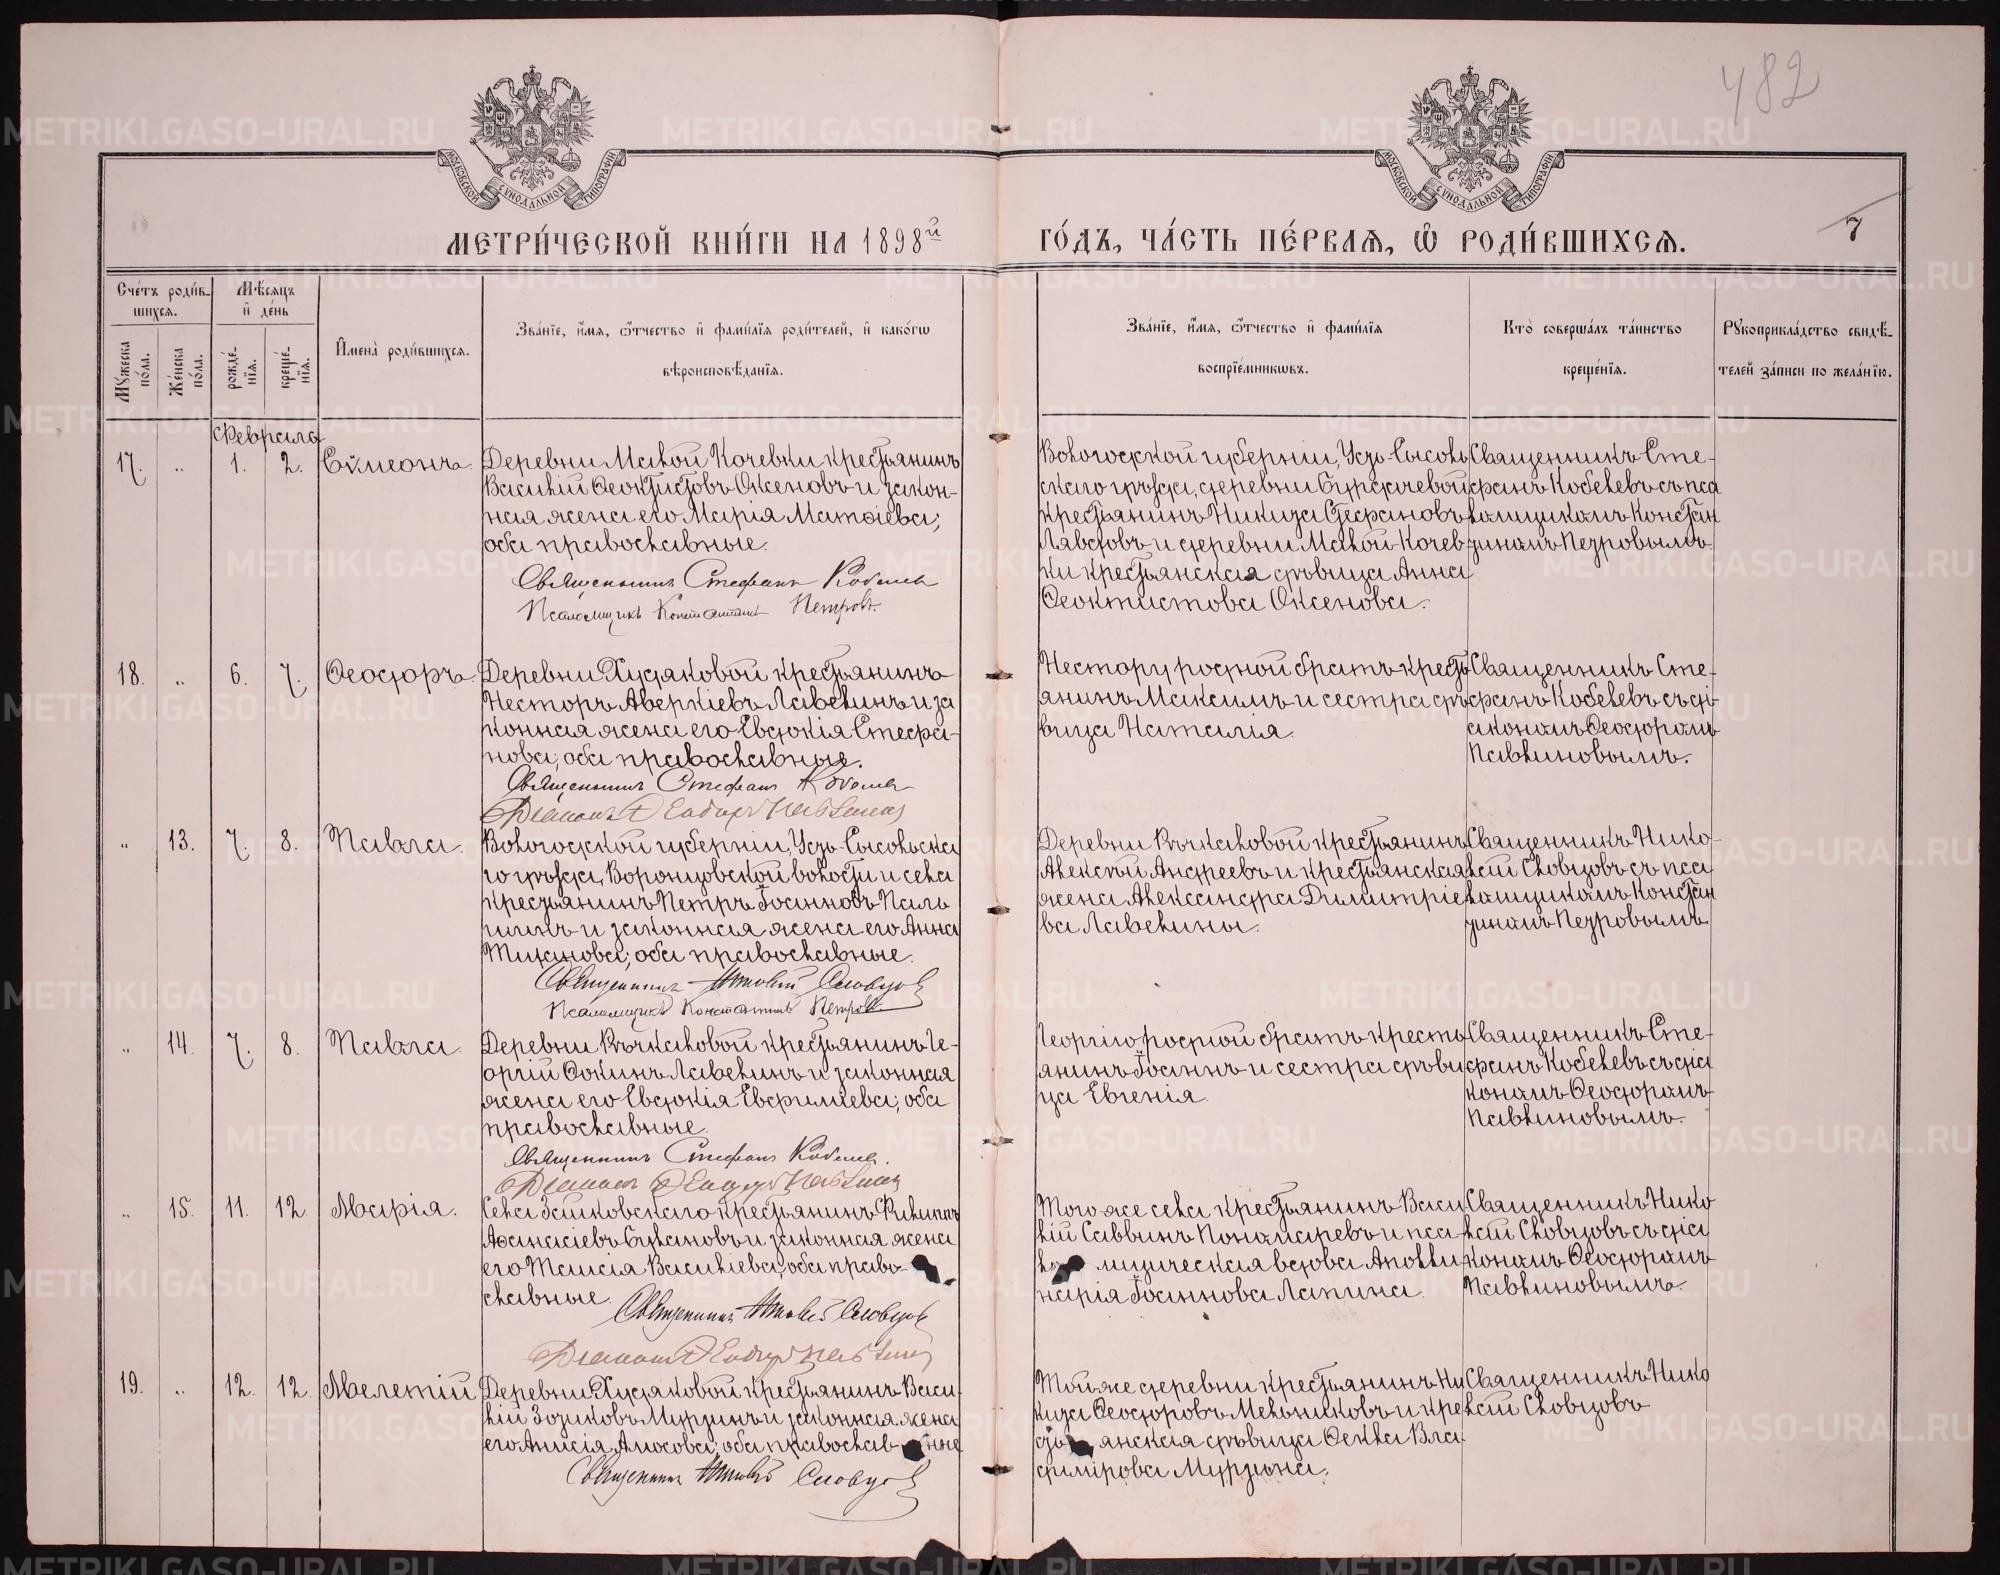 482
МОСКОВСКОЙ СѴНОДАЛЬНОЙ ТИПОГРАФІИ
МОСКОВСКОЙ СѴНОДАЛЬНОЙ ТИПОГРАФІИ
МЕТРИ́ЧЕСКОЙ КНИ́ГИ НА 1898й ГО́ДЪ, ЧА́СТЬ ПЕ́РВАЯ, Ѡ РОДИ́ВШИХСЯ. 7
Сче́тъ роди́вшихся.
Мꙋ́жеска по́ла.
Же́нска по́ла.
Мѣ́сяцъ и де́нь
рожде́нїя.
креще́нїя.
Имена̀ роди́вшихся.
Зва́нїе, и́мя, ѻ҆́тчество и фами́лїя роди́телей, и како́гѡ
вѣроисповѣ́данїя.
Зва́нїе, и́мя, ѻ҆́тчество и фами́лїя
воспрїе́мникѡвъ.
Кто̀ соверша́лъ та́инство
креще́нїя.
Рꙋкоприкла́дство свидѣ́-
телей за́писи по жела́нїю.
Февраля
17. " 1. 2. Сѵмеонъ.
Деревни Малой Кочевки крестьянинъ
Василій Ѳеоктистовъ Оксеновъ и закон-
ная жена его Марія Матѳіева;
оба православные.
Священникъ Стефанъ Кобелевъ
Псаломщикъ Константинъ Петровъ.
Вологодской губерніи, Усть-Сысоль
скаго уѣзда, деревни
крестьянинъ Никита Стефановъ
и деревни Малой Кочев
ки крестьянская дѣвица Анна
Ѳеоктистова Оксенова.
Священникъ Сте-
фанъ Кобелевъ съ пса
ломщикомъ Констан
тиномъ Петровымъ
18. " 6. 7. Ѳеодоръ.
Деревни Худяковой крестьянинъ
Несторъ Аверкіевъ Лавелинъ и за
конная жена его Евдокія Стефа-
нова; оба православные.
Священникъ Стефанъ Кобелевъ
Діаконъ Ѳеодоръ Павлиновъ
Нестору родной братъ кресть
янинъ Максимъ и сестра дѣ
вица Наталія.
Священникъ Сте-
фанъ Кобелевъ съ ді-
акономъ Ѳеодоромъ
Павлиновымъ.
" 13. 7. 8. Павла.
Вологодской губерніи, Усть-Сысольска
го уѣзда, Воронцовской волости и села
крестьянинъ Петръ Іоанновъ Паль
шинъ и законная жена его Анна
Титанова; оба православные.
Священникъ Николай Словцовъ
Псаломщикъ Константинъ Петровъ
Деревни Вычкаловой крестьянинъ
Алексѣй Андреевъ и крестьянская
жена Александра Димитріе
ва Лавелины.
Священникъ Нико-
лай Словцовъ съ пса
ломщикомъ Констан
тиномъ Петровымъ
" 14. 7. 8. Павла.
Деревни Вычкаловой крестьянинъ Ге-
оргій Ѳокинъ Лавелинъ и законная
жена его Евдокія Евфиміева; оба
православные.
Священникъ Стефанъ Кобелевъ.
Діаконъ Ѳеодоръ Павлиновъ
Георгію родной братъ кресть
янинъ Іоаннъ и сестра дѣви
ца Евгенія.
Священникъ Сте-
фанъ Кобелевъ съ діа
кономъ Ѳеодоромъ
Павлиновымъ.
" 15. 11. 12. Марія.
Села Зайковскаго крестьянинъ Филиппъ
Аѳанасіевъ Булановъ и законная жена
его Таисія Василіева; оба право-
славные.
Священникъ Николай Словцовъ
Діаконъ Ѳеодоръ Павлиновъ
Того же села крестьянинъ Васи
лій Саввинъ Пономаревъ и пса-
ло мщическая вдова Аполли
нарія Іоаннова Лапина.
Священникъ Нико
лай Словцовъ съ діа
кономъ Ѳеодоромъ
Павлиновымъ.
19. " 12. 12. Мелетій
Деревни Худяковой крестьянинъ Васи-
лій Зотиковъ Мурзинъ и законная жена
его Анисія Амосова; оба православ ные
Священникъ Николай Словцовъ
Той же деревни крестьянинъ Ни
кита Ѳеодоровъ Мельниковъ и кре
сть янская дѣвица Ѳекла Вла
димірова Мурзина.
Священникъ Нико
лай Словцовъ
METRIKI.GASO-URAL.RU